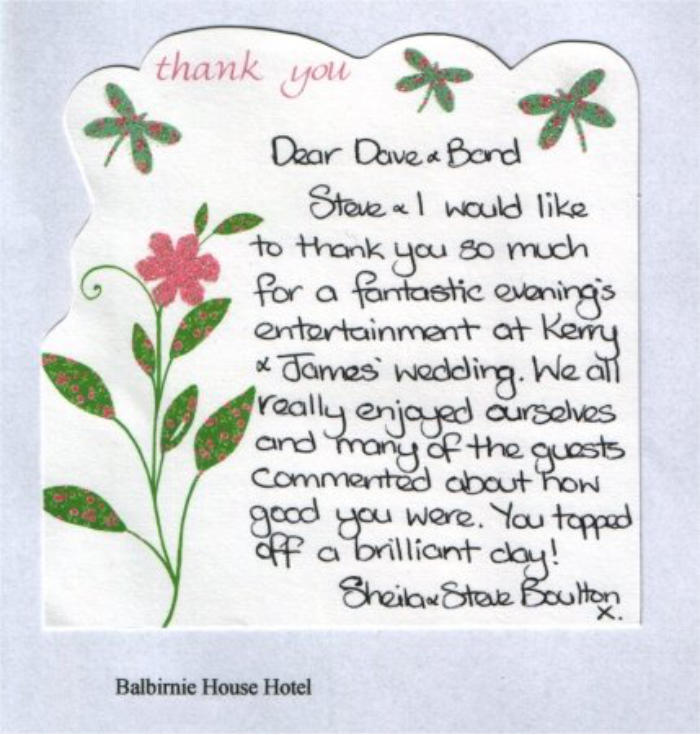 thank you
Dear Dave & Band
Steve & I would like
to thank you so much
for a fantastic evening's
entertainment at Kerry
& James' wedding. We all
really enjoyed ourselves
and many of the guests
commented about how
good you were. You topped
off a brilliant day!
Sheila & Steve Boulton
x.
Balbirnie House Hotel